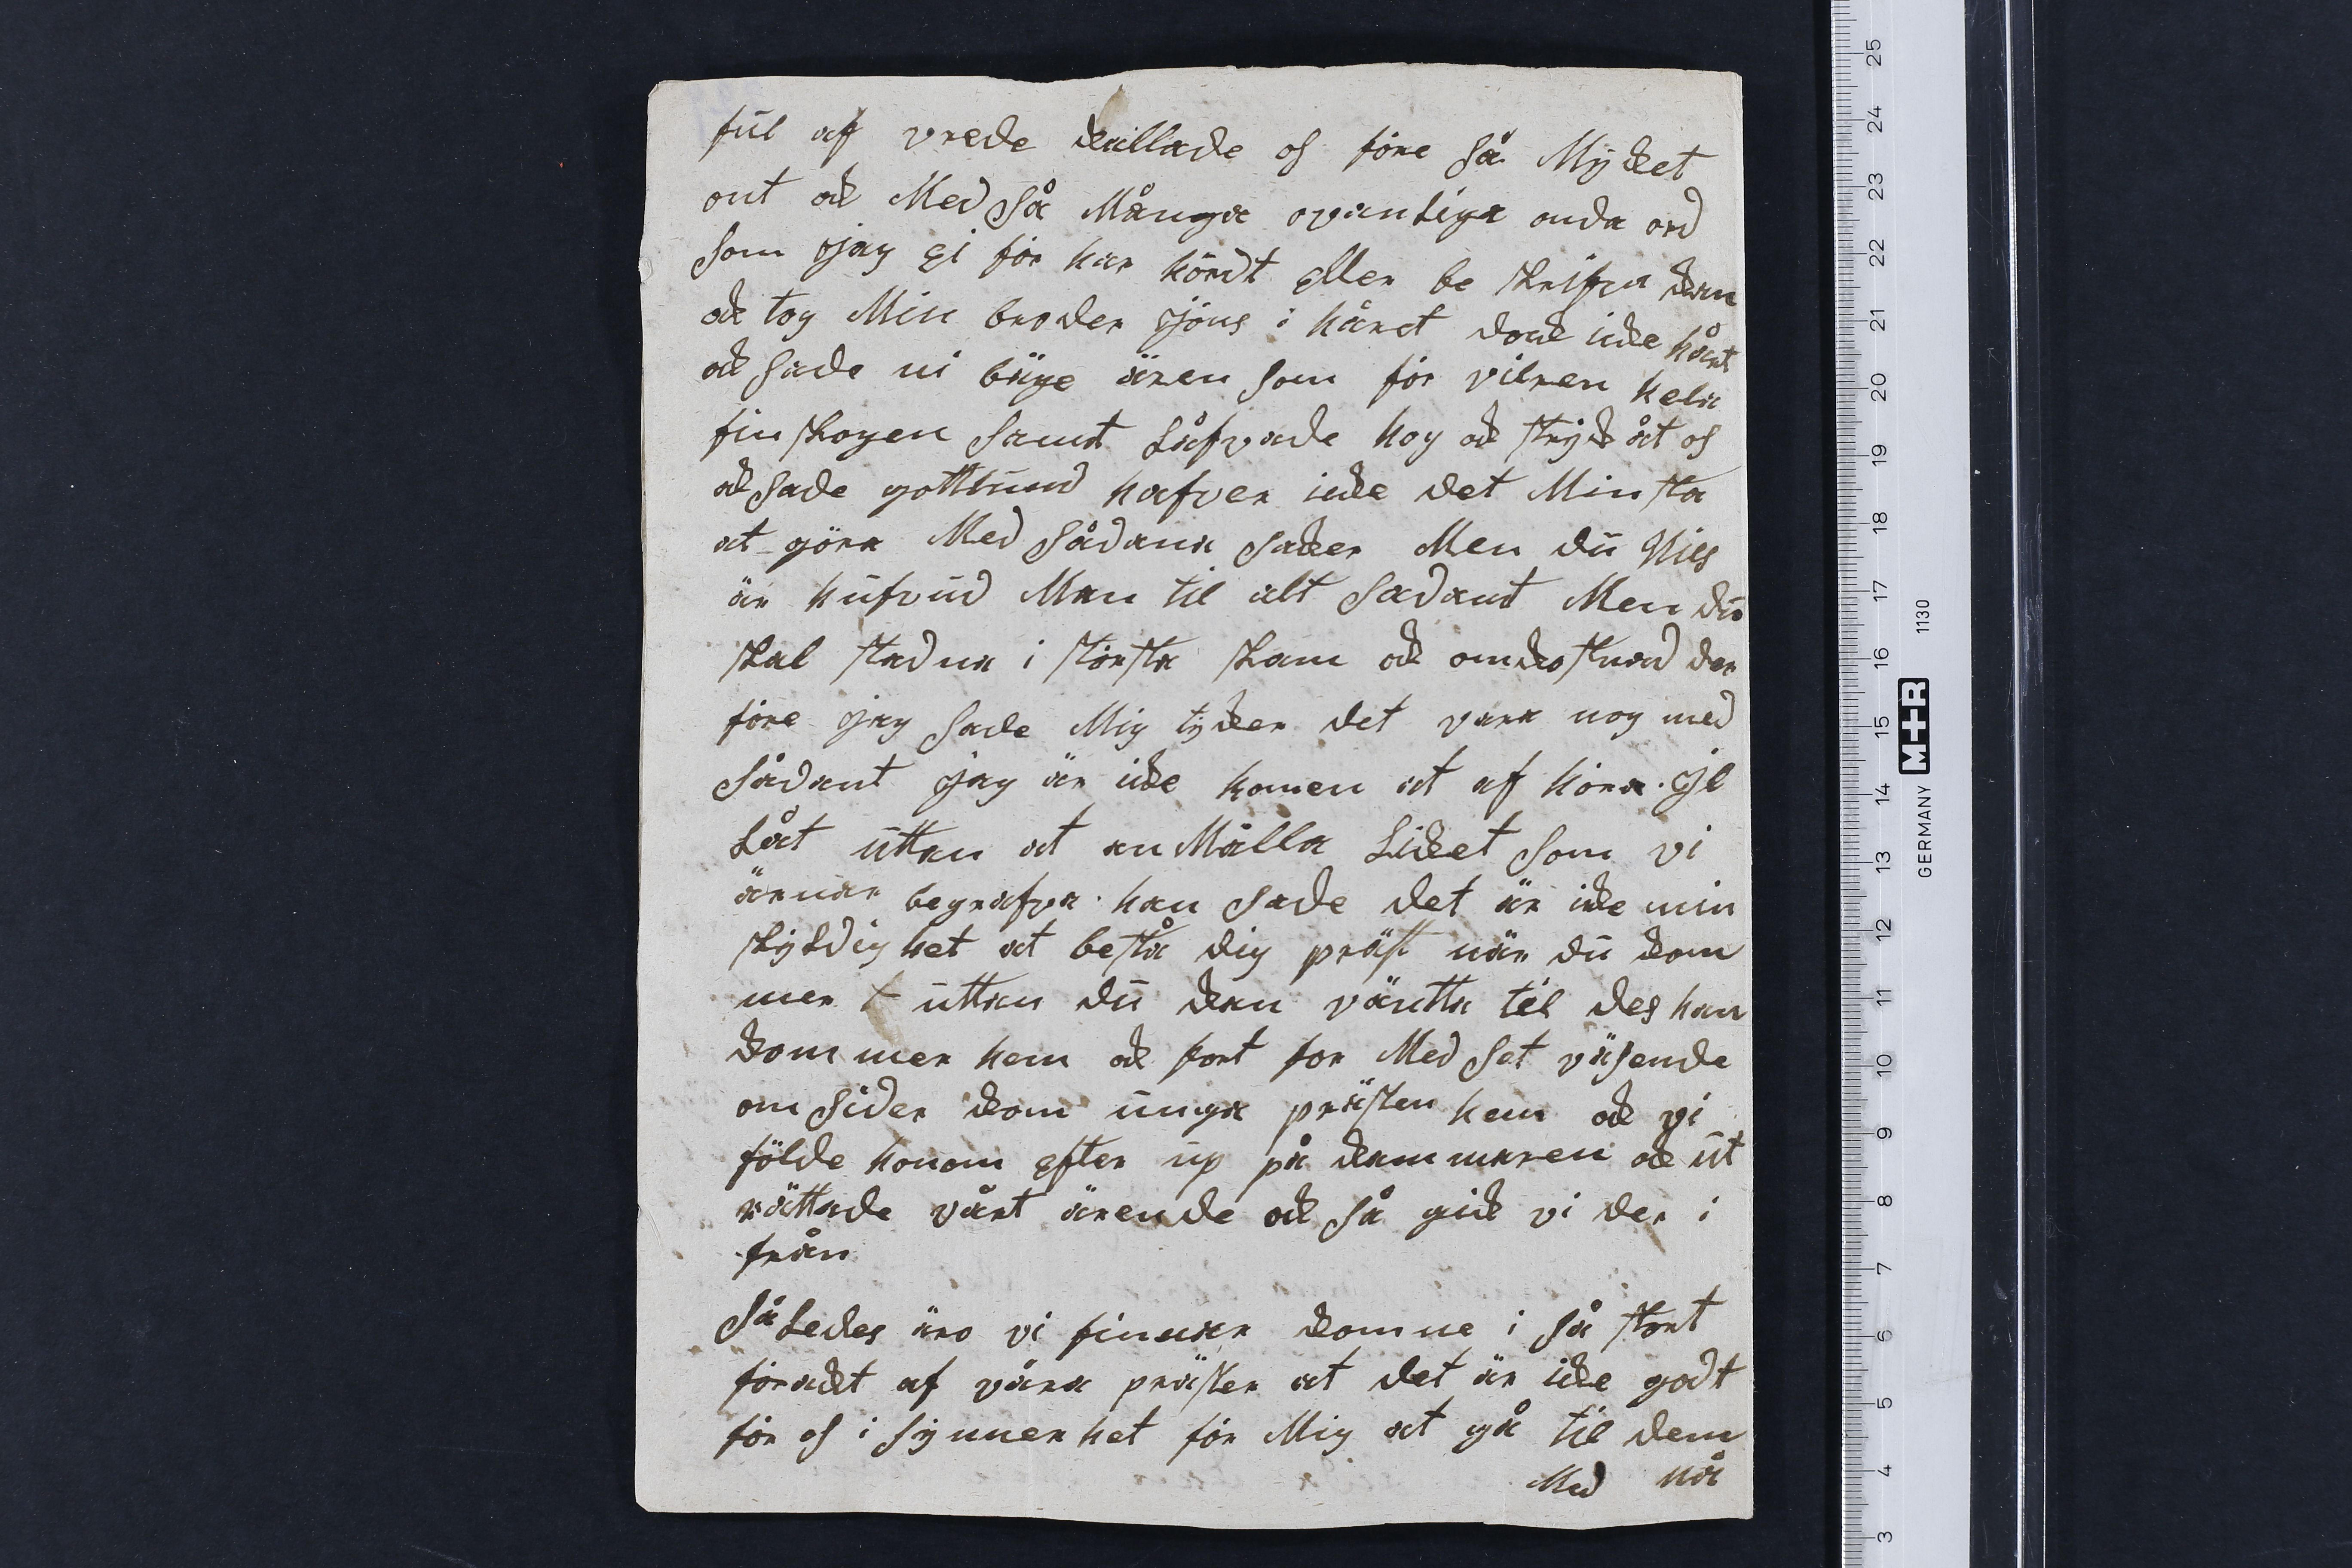 fúl af vrede kallade os före så Mÿcket
ont ock Med så Många ovanliga onda ord
som jag ei för har hördt eller be skrifva kan
ock tog Min broder jöns i håret dock icke hårt
ock sade ni bäge ären som för virren hela
finskogen samt låfvade hog ock strÿck åt os
ock sade gottlund hafver icke det Minsta
at göra Med sådana saker Men dú Nils
är húfvúd Man til alt sadant Men dú
skal stadna i största skam ock omkostnad der
före jag sade Mig tÿcker det vara nog med
sådant jag är icke komen at af höra. jl
låt úttan at an Målla Licket som vi
ärnar begrafva. han sade det är icke min
skÿldig het at bestå dig präst när dú kom
mer úttan dú kan väntta til des han
kommer hem ock fort for Med set väsende
om sider kom únga prästen hem ock vi
földe honom efter úp på kammaren ock út
rättade vårt ärende ock så gick vi der i
från
så Ledes äro vi finnar komne i så stort
förackt af våra präster at det är icke godt
för os i sÿnner het för Mig at gå til dem
Med nå
25
24
23
22
21
20
19
18
17
16
15
14
13
12
11
10
9
8
7
6
5
4
3
GERMANY M+R 1130